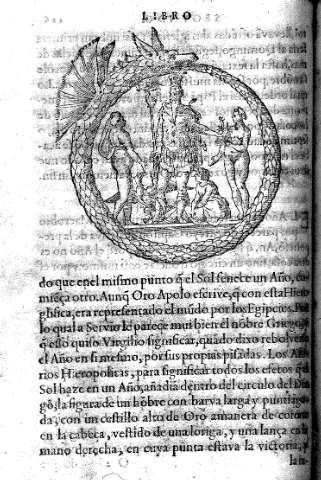 LIBRO
do que enel mismo punto q̃ el Sol fenece un Año, co-
mieça otro. Aunq̃ Oro Apolo escrive, q̃ con esta Hiero
glifica, era representado el mũdo por los Egipcios. Po
lo qual a Servio le parece mui bien el nõbre Griego
q̃ esto quiso Virgilio significar, quãdo dixo rebolverse
el Año en si mesmo, por sus propias pisadas. Los Asi
rios Hieropolitas, para significar todos los efetos q̃
Sol haze en un Año, añadiã dentro del circulo del
gõ, la figura de un hõbre con barva larga y puntiagu
da, con un cestillo alto de Oro amanera de corona
en la cabeça, vestido de una loriga, y una lança en la
mano derecha, en cuya punta estava la victoria, y
lan-